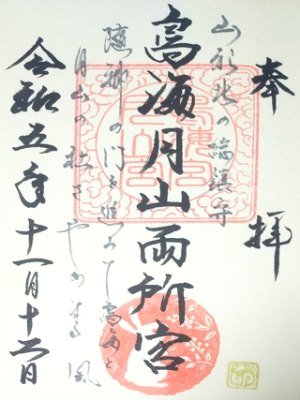 奉拝
山形北の総鎮守
鳥海月山両所宮
随神の門を進みて鳥海と
月山の社さやか
風
令和五年十一月十二日